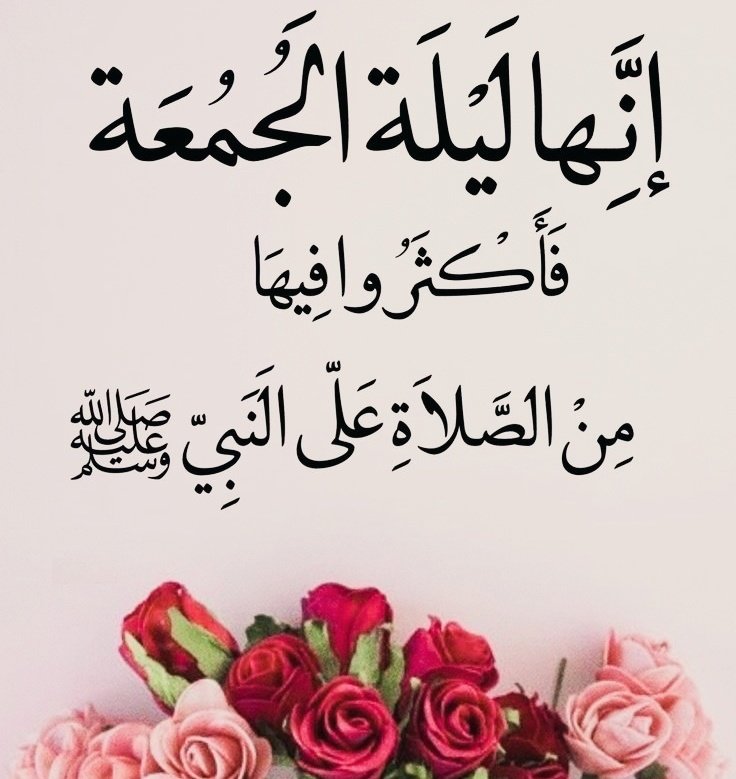 إِنَّها لَيْلَة الجُمُعَة
فَأَكْثَرُوا فِيهَا
مِنْ الصَّلاَةِ عَلَّى النَبِيّ ﷺ